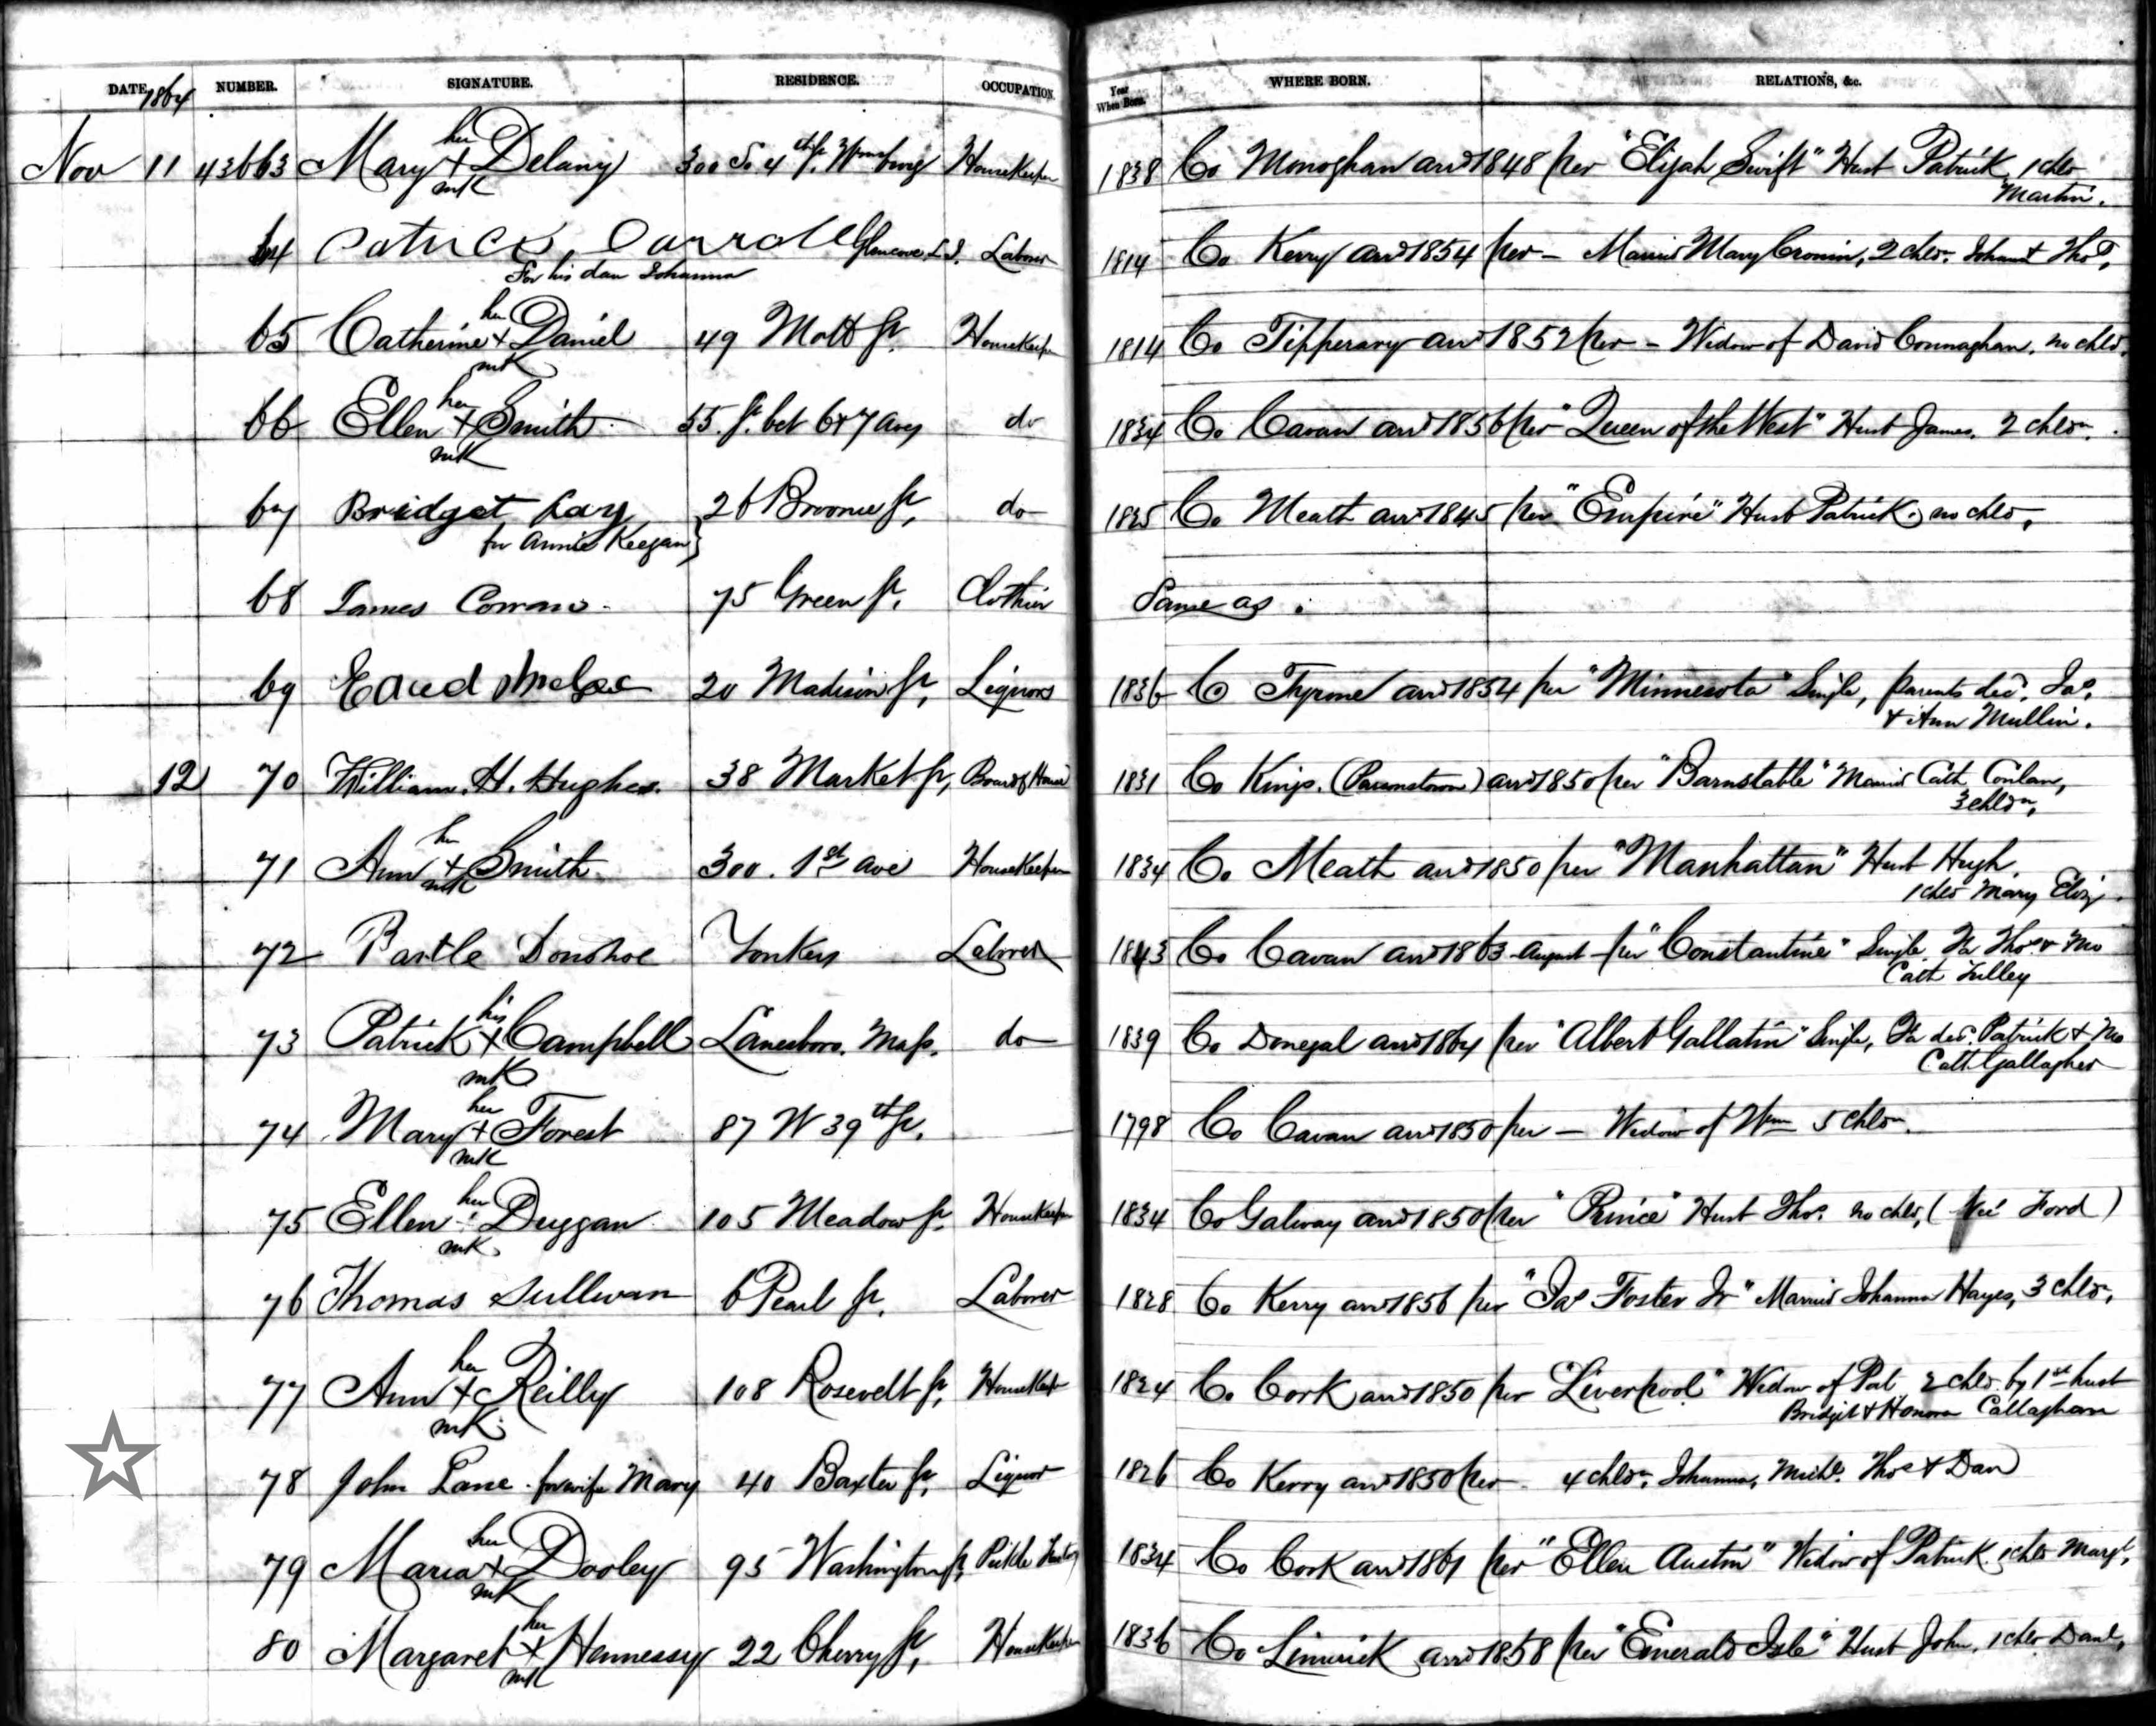 DATE 1864 NUMBER. SIGNATURE. RESIDENCE. OCCUPATION. Year When Born. WHERE BORN. RELATIONS, &c.
Nov 11 43663 Mary her + mk Delany 300 So 4th St. Wmsburg HouseKeeper 1838 Co Monoghan arrd 1848 per "Elijah Swift" Husb Patrick, 1 chld
Martin.
64 Patrick Carroll Glencove L.I. Laborer 1814 Co Kerry arrd 1854 per – Married Mary Cronin, 2 chldn. Johana & Thos,
For his dau Johanna
65 Catherine her + mk Daniel 49 Mott St. HouseKeeper 1814 Co Tipperary arrd 1852 per – Widow of David Connaghan. no chld.
66 Ellen her + mk Smith 55. St. bet 6 & 7 avs do 1834 Co Cavan arrd 1856 per "Queen of the West" Husb James. 2 chldn.
67 Bridget Kay 26 Broome St, do 1825 Co Meath arrd 1845 per "Empire" Husb Patrick. no chld.
for Annie Keegan}
68 James Conran. 75 Green St. Clothier Same as .
69 Edwd 20 Madison St, Liquors 1836 Co Tyrone arrd 1854 per "Minnesota" Single, parents decd. Jas.
& Ann Mullin.
12 70 William. H. Hughes. 38 Market St, Boardg House 1831 Co Kings. (Parsonstown) arrd 1850 per "Barnstable" Married Cath Conlan,
3 chldn,
71 Ann her + mk Smith 300. 1st ave HouseKeeper 1834 Co Meath arrd 1850 per "Manhattan" Husb Hugh.
1 chld Mary Eliz.
72 Bartle Donohoe Yonkers Laborer 1843 Co Cavan arrd 1863 August per "Constantine" Single Fa Thos & Mo
Cath Tulley
73 Patrick his + mk Campbell Lanesboro. Mass. do 1839 Co Donegal arrd 1864 per "Albert Gallatin" Single, Fa decd. Patrick & Mo
Cath Gallagher
74 Mary her + mk Forest 87 W 39th St. 1798 Co Cavan arrd 1850 per – Widow of Wm 5 chldn.
75 Ellen her + mk Duggan 105 Meadow St. HouseKeeper 1834 Co Galway arrd 1850 per "Prince" Husb Thos. no chld, (Neé Ford)
76 Thomas Sullivan 6 Pearl St. Laborer 1828 Co Kerry arrd 1856 per "Jas Foster Jr" Married Johanna Hayes, 3 chldn,
77 Ann her + mk Reilly 108 Rosevelt St, HouseKeeper 1824 Co Cork arrd 1850 per "Liverpool" Widow of Pat, 2 chld by 1st husb
Bridget & Honora Callaghan
78 John Lane. for wife Mary 40 Baxter St, Liquor 1826 Co Kerry arrd 1850 per – 4 chldn. Johanna, Michl. Thos & Dan
79 Maria her + mk Dooley 95 Washington St, Pickle Factory 1834 Co Cork arrd 1861 per "Ellen Austin" Widow of Patrick, 1 chld Margt,
80 Margaret her + mk Hennessy 22 Cherry St, HouseKeeper 1836 Co Limerick arrd 1858 per "Emerald Isle" Husb John. 1 chld Danl,